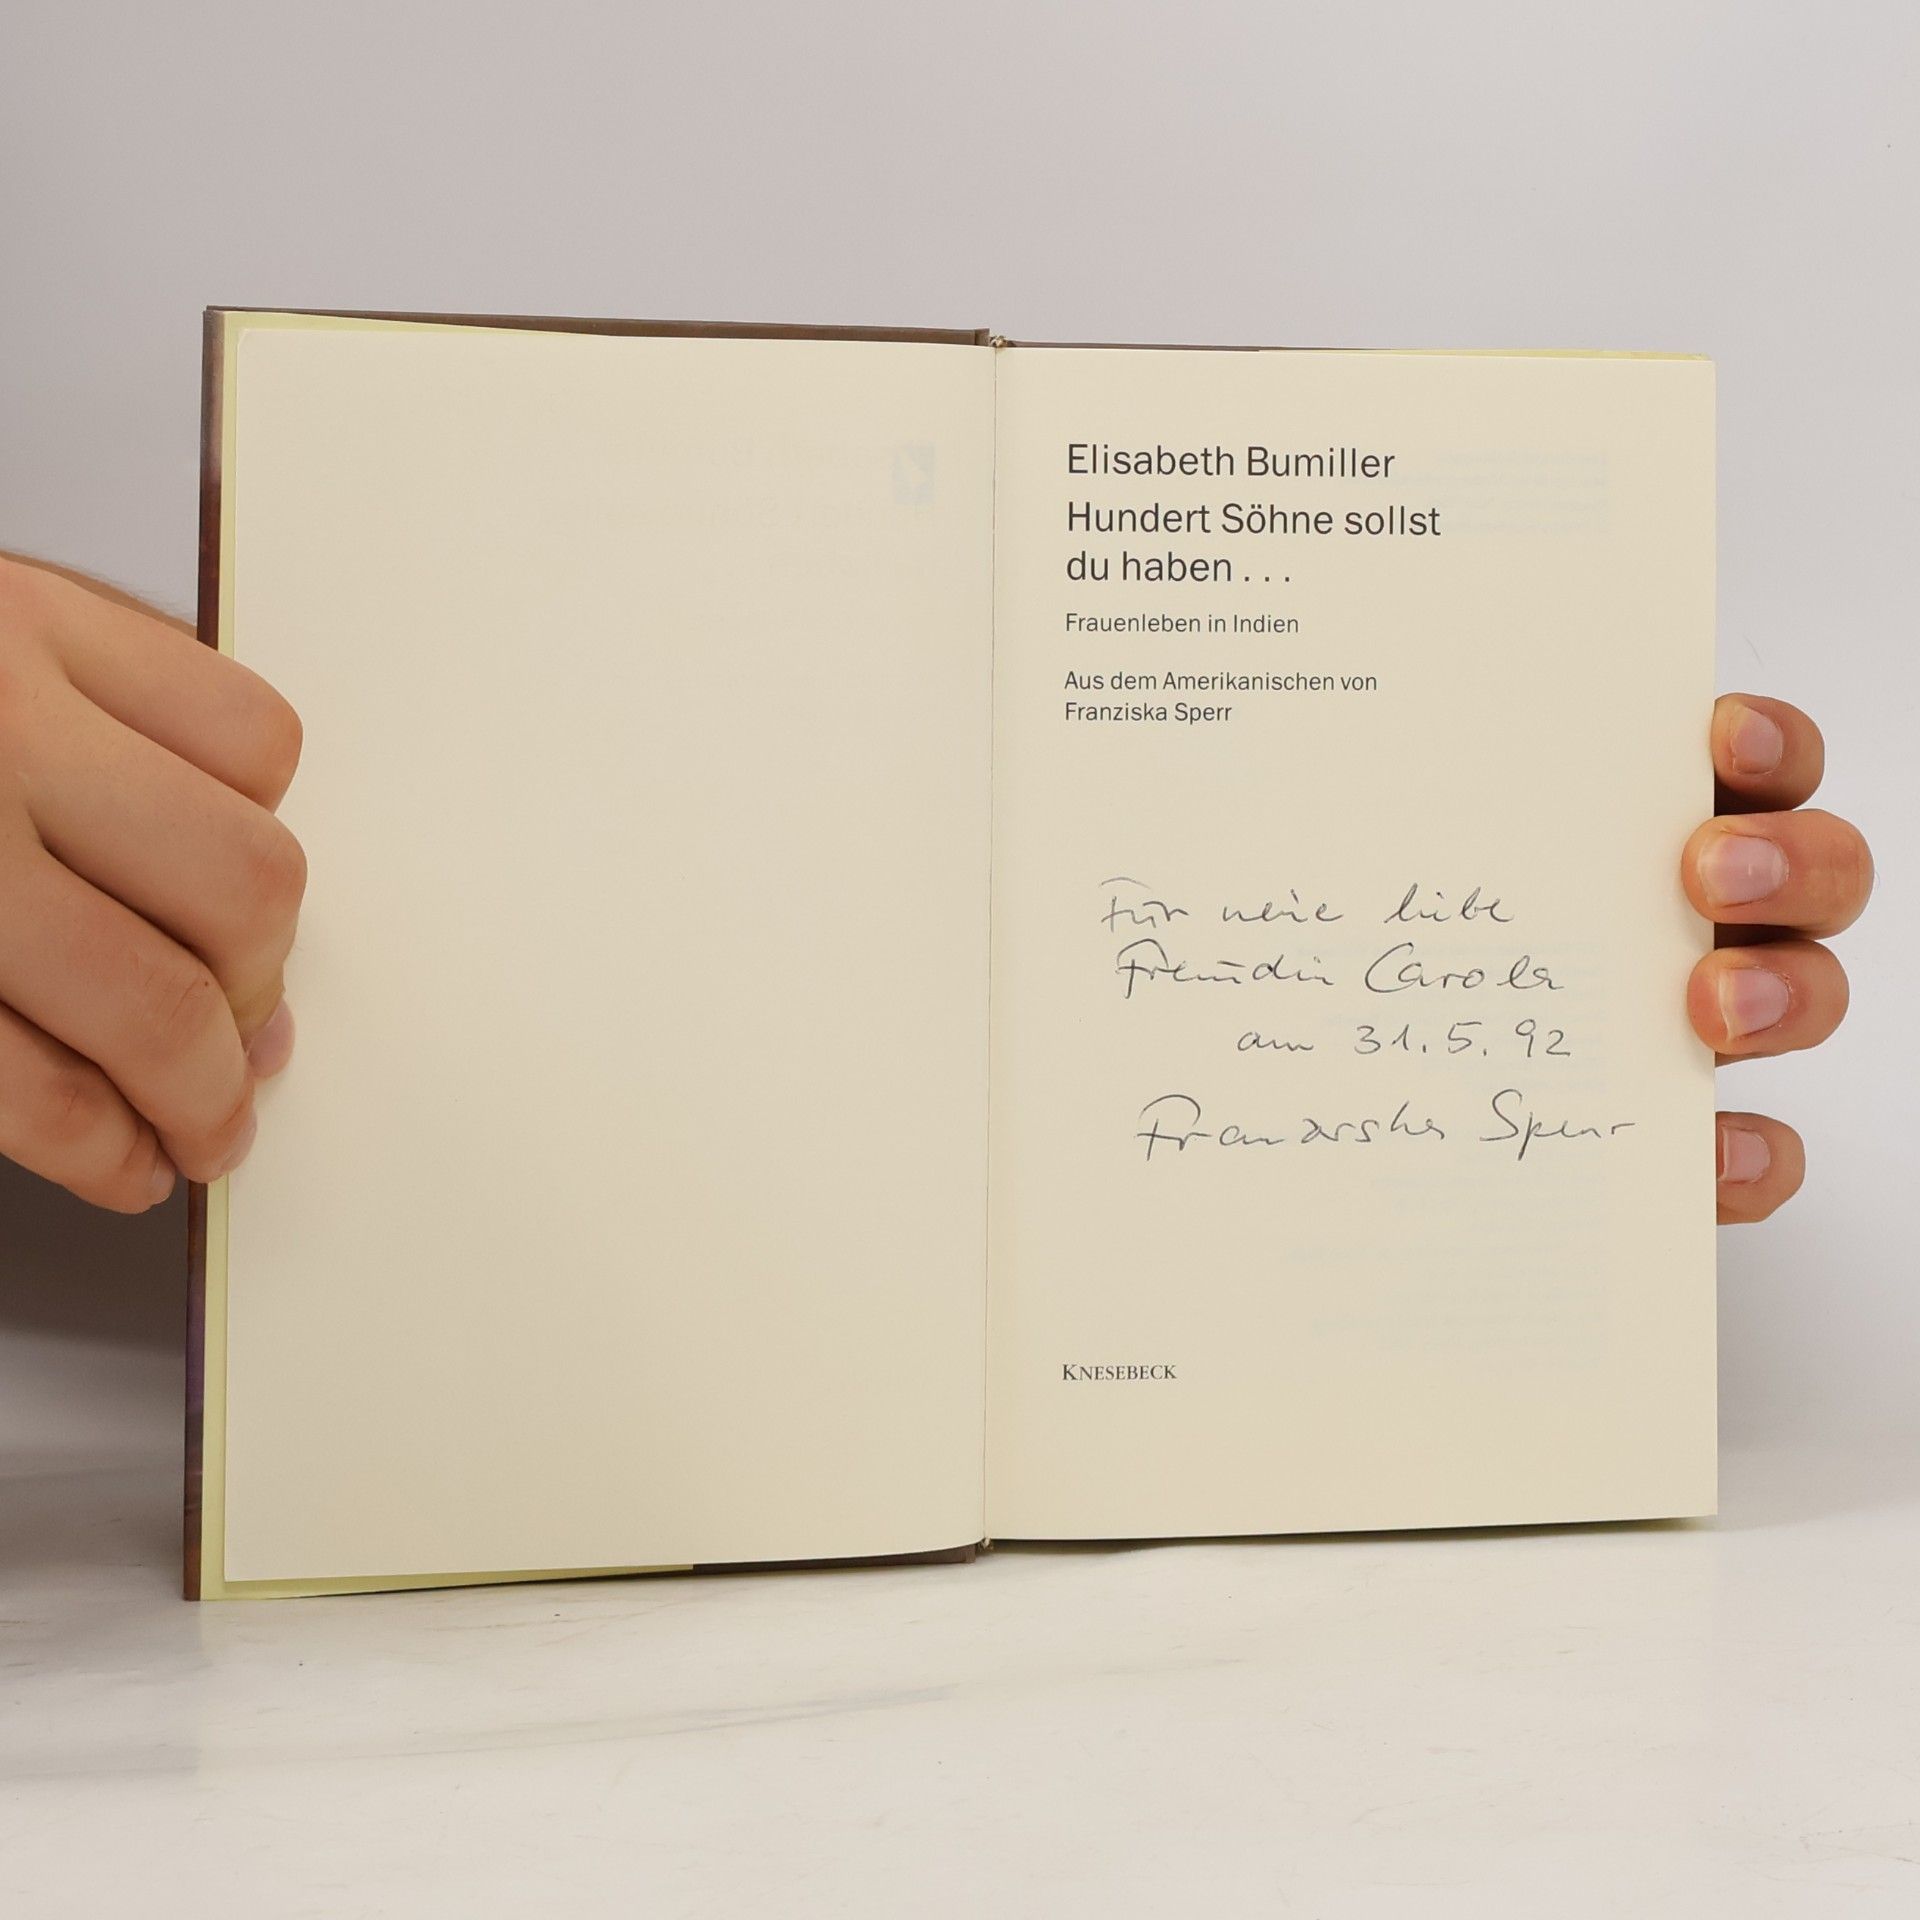 Elisabeth Bumiller
Hundert Söhne sollst
du haben . . .
Frauenleben in Indien
Aus dem Amerikanischen von
Franziska Sperr
Für meine liebe
Freundin Carola
am 31.5.92
Franziska Sperr
KNESEBECK